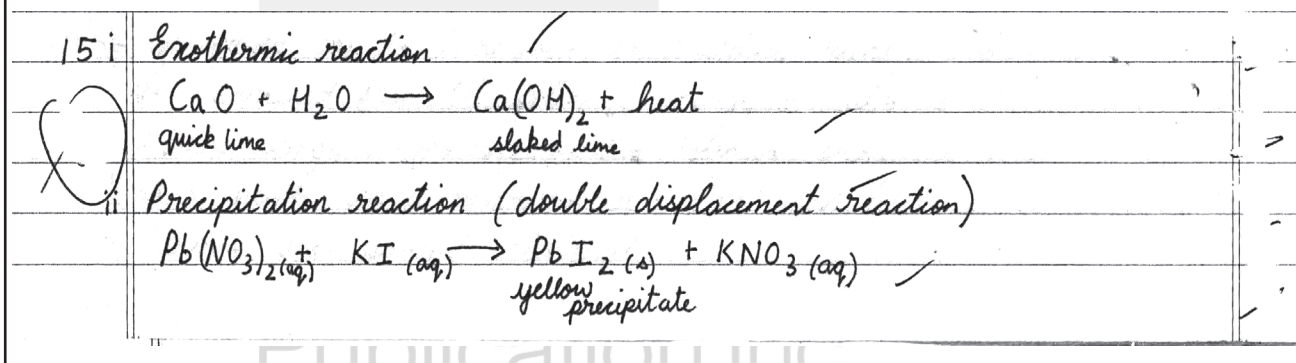 15 i Exothermic reaction
CaO + H₂O → Ca(OH)₂ + heat
quick lime slaked lime
ii Precipitation reaction (double displacement reaction)
Pb(NO₃)₂(aq) + KI (aq) → PbI₂ (s) + KNO₃ (aq)
yellow
precipitate